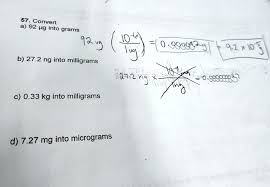 57. Convert
a) 92 µg into grams
92 ug ( 10⁻⁶ / 1ug ) = 0.000092g = 9.2 x 10⁻⁵ g
b) 27.2 ng into milligrams
27.2 ng x
c) 0.33 kg into milligrams
d) 7.27 mg into micrograms